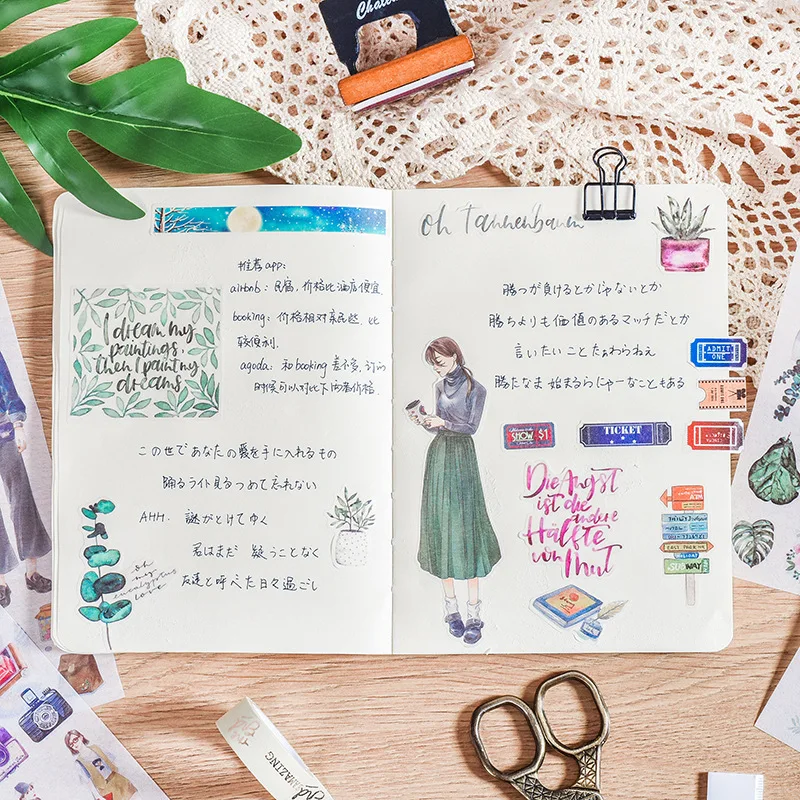 Chate
推荐app:
airbnb: 民宿,价格比酒店便宜
booking: 价格相对亲民些,比
较便利.
agoda: 和booking差不多,订的
时候可以对比下两者价格.
I dream my
paintings,
then I paint my
dreams
この世であなたの愛を手に入れるもの
踊るライト見るつめて忘れない
AHH. 謎がとけてゆく
君はまだ 疑うことなく
友達と呼べた日々過ごし
oh
my
eucalyptus
love
oh Tannenbaum
勝つが負けるとかじゃないとか
勝ちよりも価値のあるマッチだとか
言いたいことたぁわらねえ
勝たなま 始まるらにゃーなこともある
ADMIT
ONE
SHOW $1
TICKET
Die Angst
ist die
andere
Hälfte
von Mut
SUBWAY
AMAZING